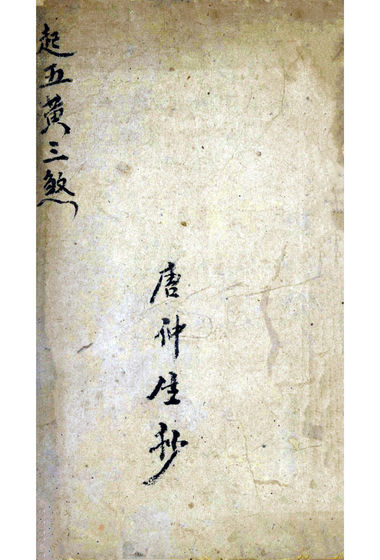 起五黃三煞
唐仲生抄